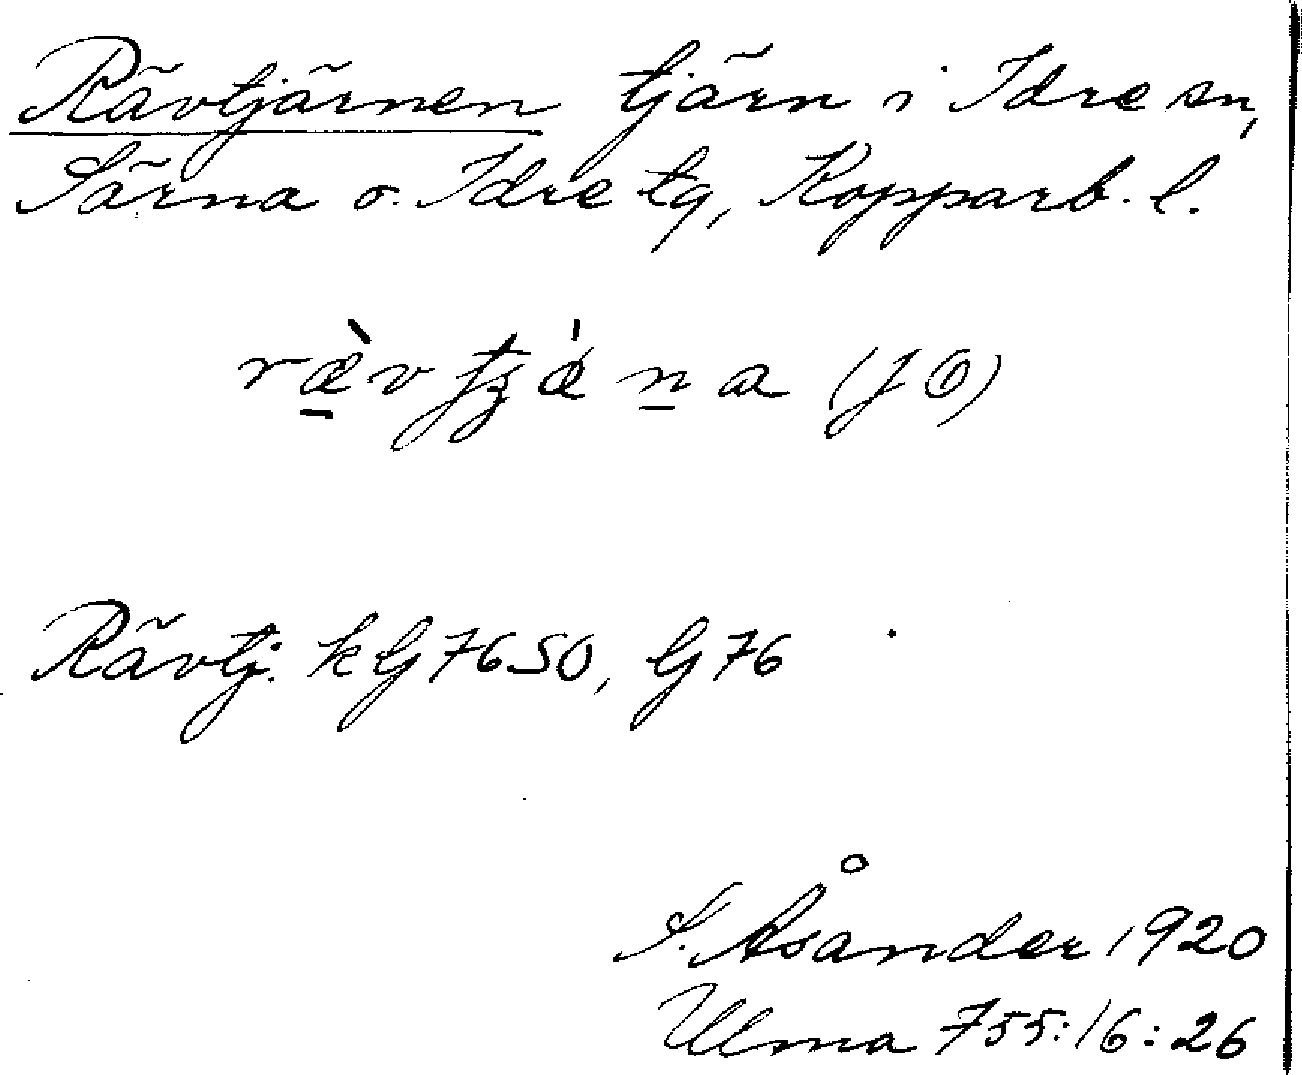 Rävtjärnen tjärn i Idre sn,
Särna o. Idre tg, Kopparb. l.
ræ̀v tʒǽ na (JO)
Rävtj. k G 7650, G 76
S. Åsander 1920
Ulma 755:16:26